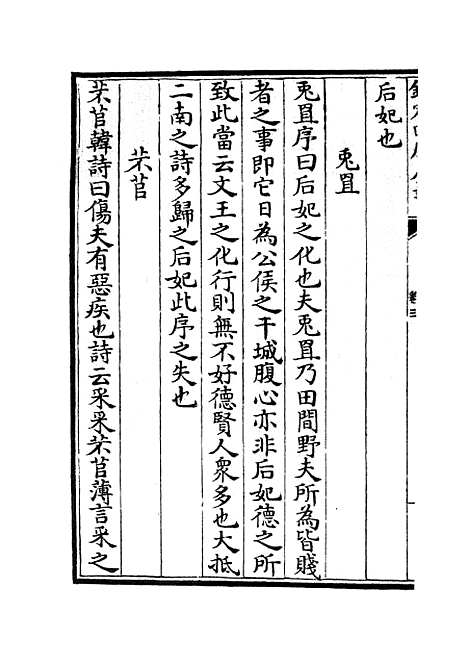 后妃也
兎罝
兎罝序曰后妃之化也夫兎罝乃田間野夫所為皆賤
者之事即它日為公侯之干城腹心亦非后妃德之所
致此當云文王之化行則無不好德賢人衆多也大抵
二南之詩多歸之后妃此序之失也
芣苢
芣苢韓詩曰傷夫有惡疾也詩云采采芣苢薄言采之